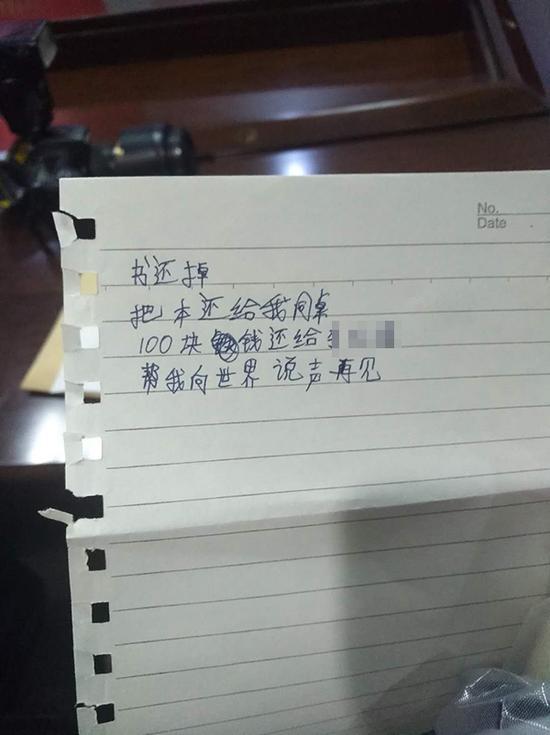 No.
Date
书还掉
把本还给我同桌
100块钱还给
帮我向世界说声再见